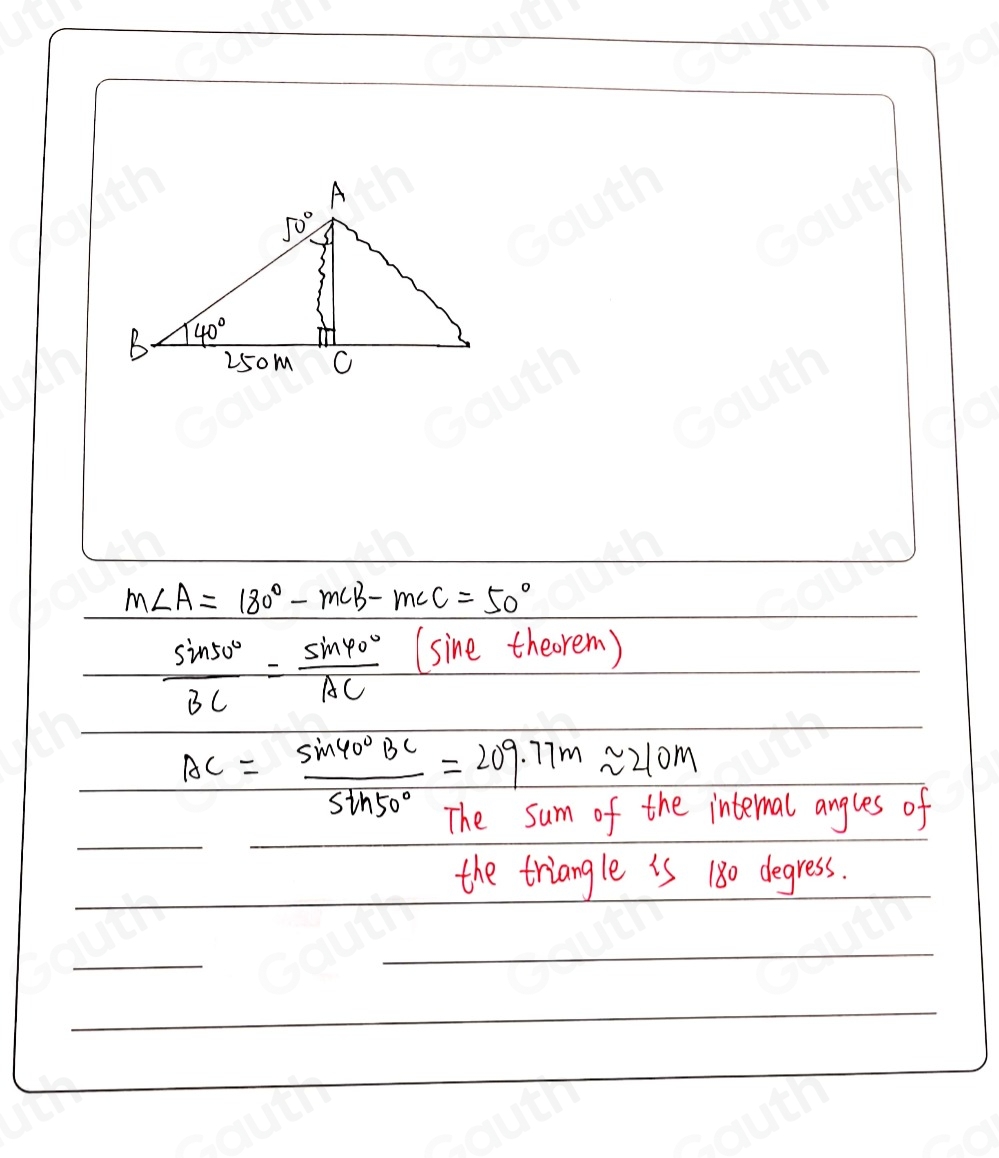 A
50°
B 40°
250m C
m∠A = 180° - m∠B - m∠C = 50°
sin50° / BC = sin40° / AC (sine theorem)
AC = sin40° BC / sin50° = 209.77m ≈ 210m
The sum of the internal angles of
the triangle is 180 degress.
Gauth